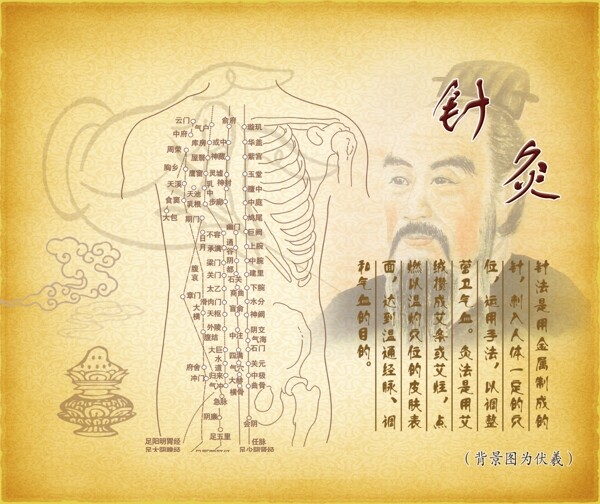 针灸
针法是用金属制成的
针，刺入人体一定的穴
位，运用手法，以调整
营卫气血。灸法是用艾
绒搓成艾条或艾炷，点
燃以温灼穴位的皮肤表
面，达到温通经脉、调
和气血的目的。
（背景图为伏羲）
云门
中府
周荣
胸乡
天溪
食窦
大包
气户
库房
屋翳
膺窗
乳中
乳根
天池
期门
日月
腹哀
章门
大横
腹结
府舍
冲门
俞府
或中
神藏
灵墟
神封
步廊
不容
承满
梁门
关门
太乙
滑肉门
天枢
外陵
大巨
水道
归来
气冲
急脉
阴廉
足五里
幽门
通谷
阴都
石关
商曲
肓俞
中注
四满
气穴
大赫
横骨
璇玑
华盖
紫宫
玉堂
膻中
中庭
鸠尾
巨阙
上脘
中脘
建里
下脘
水分
神阙
阴交
气海
石门
关元
中极
曲骨
会阴
足阳明胃经
足太阴脾经
任脉
足少阴肾经